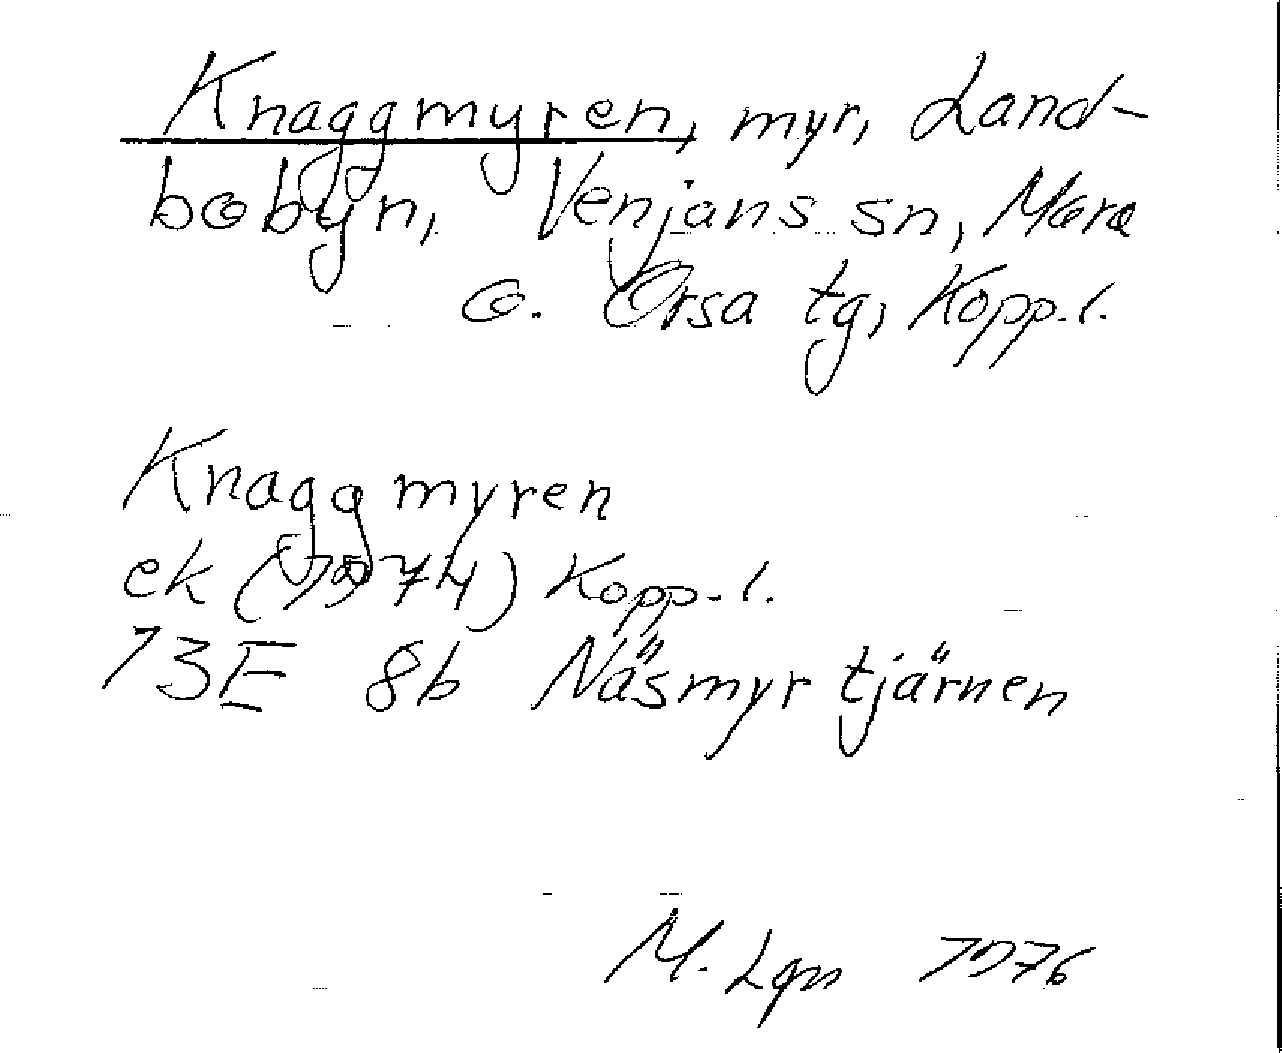 Knaggmyren, myr, Land-
bobyn, Venjans sn, Mora
o. Orsa tg, Kopp. l.
Knaggmyren
ek (1974) Kopp. l.
13E 8b Näsmyrtjärnen
M. Lgn 1976